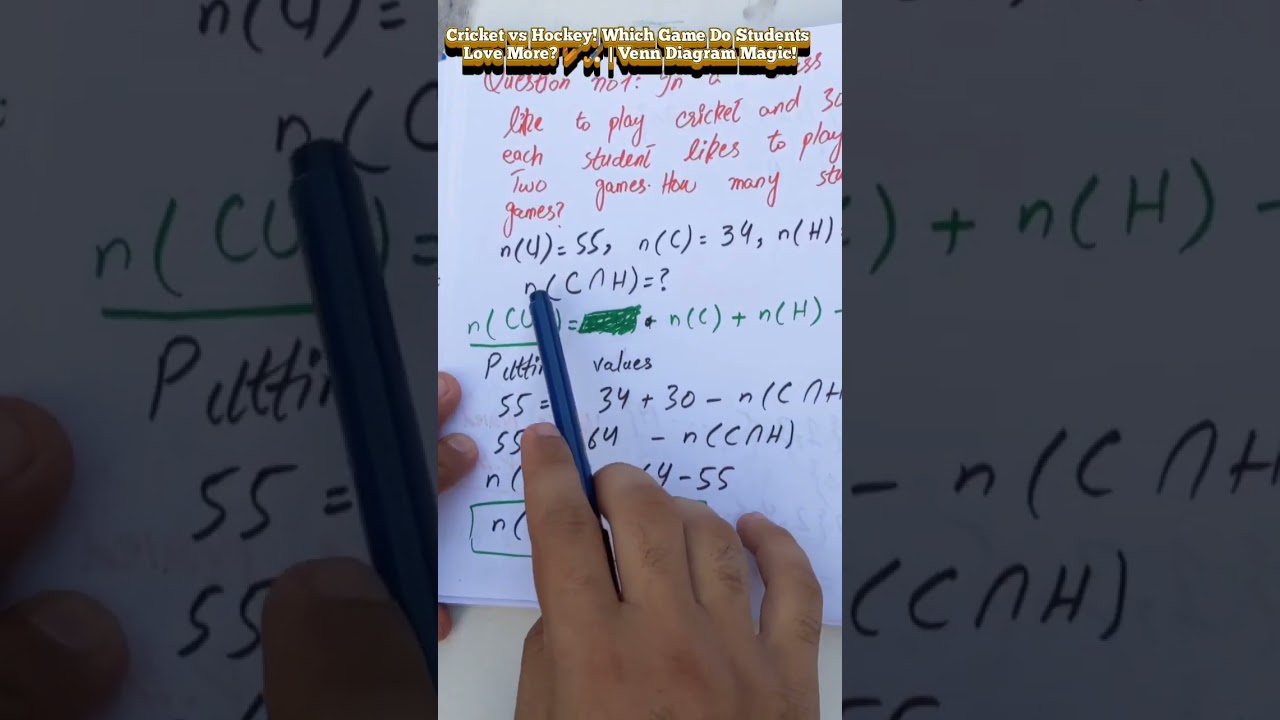 Cricket vs Hockey! Which Game Do Students
Love More? 🏏🏑 | Venn Diagram Magic!
Question no1: In a
like to play cricket and 30
each student likes to play
Two games. How many
games?
n(U) = 55, n(C) = 34, n(H)
n(C∩H) = ?
= n(C) + n(H) -
values
55 = 34 + 30 - n(C∩H
55 64 - n(C∩H)
n( 4-55
n(